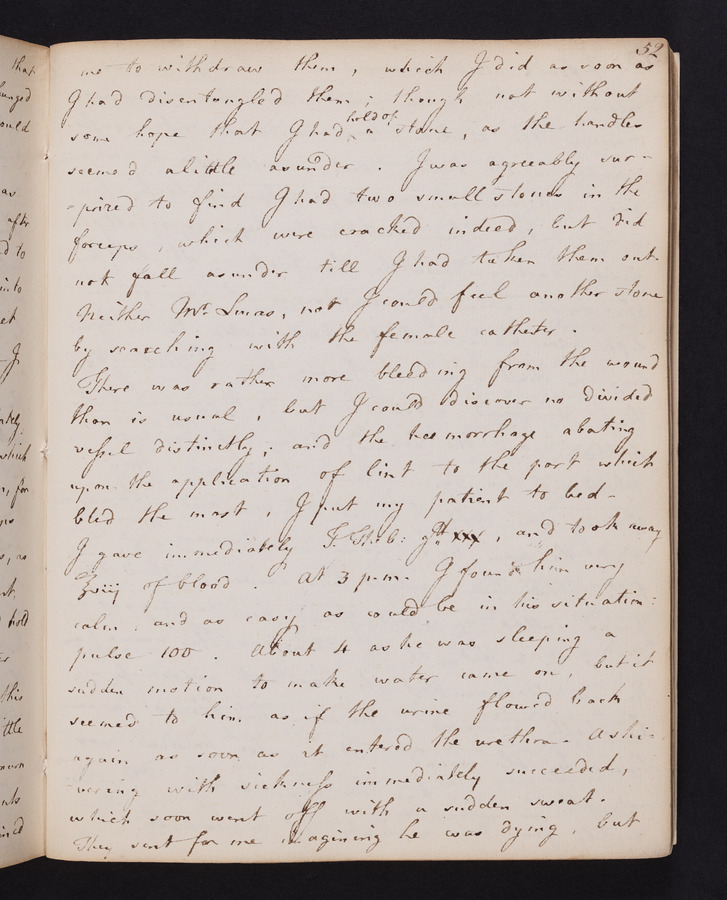 52
me to withdraw them, which I did as soon as
I had disentangled them; though not without
some hope that I had hold of a stone, as the handles
seemed a little asunder. I was agreeably sur-
-prized to find I had two small stones in the
forceps, which were cracked indeed, but did
not fall asunder till I had taken them out.
Neither Mr. Lucas, nor I could feel another stone
by searching with the female catheter.
There was rather more bleeding from the wound
than is usual, but I could discover no divided
vessel distinctly; and the haemorrhage abating
upon the application of lint to the part which
bled the most, I put my patient to bed.
I gave immediately T. Theb: gtt. xxx, and took away
℥viij of blood. At 3 p.m. I found him very
calm, and as easy as could be in his situation:
pulse 100. About 4 as he was sleeping a
sudden motion to make water came on, but it
seemed to him as if the urine flowed back
again as soon as it entered the urethra. A shi-
-vering with sickness immediately succeeded,
which soon went off with a sudden sweat.
They sent for me imagining he was dying, but